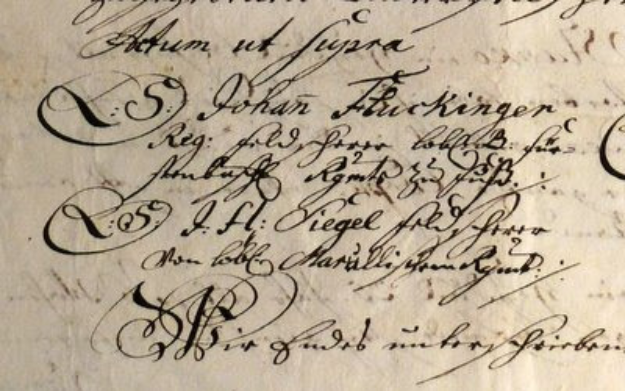 Actum ut supra
L: S: Johan̄ Fluckinger
Reg: feldscherer löbl: für-
stenbersch Rgmts zu fuß.:
L: S: J. H: Siegel feldscherer
von löbl: Marullischen Rgmt:
Wir Endes unterschrieben